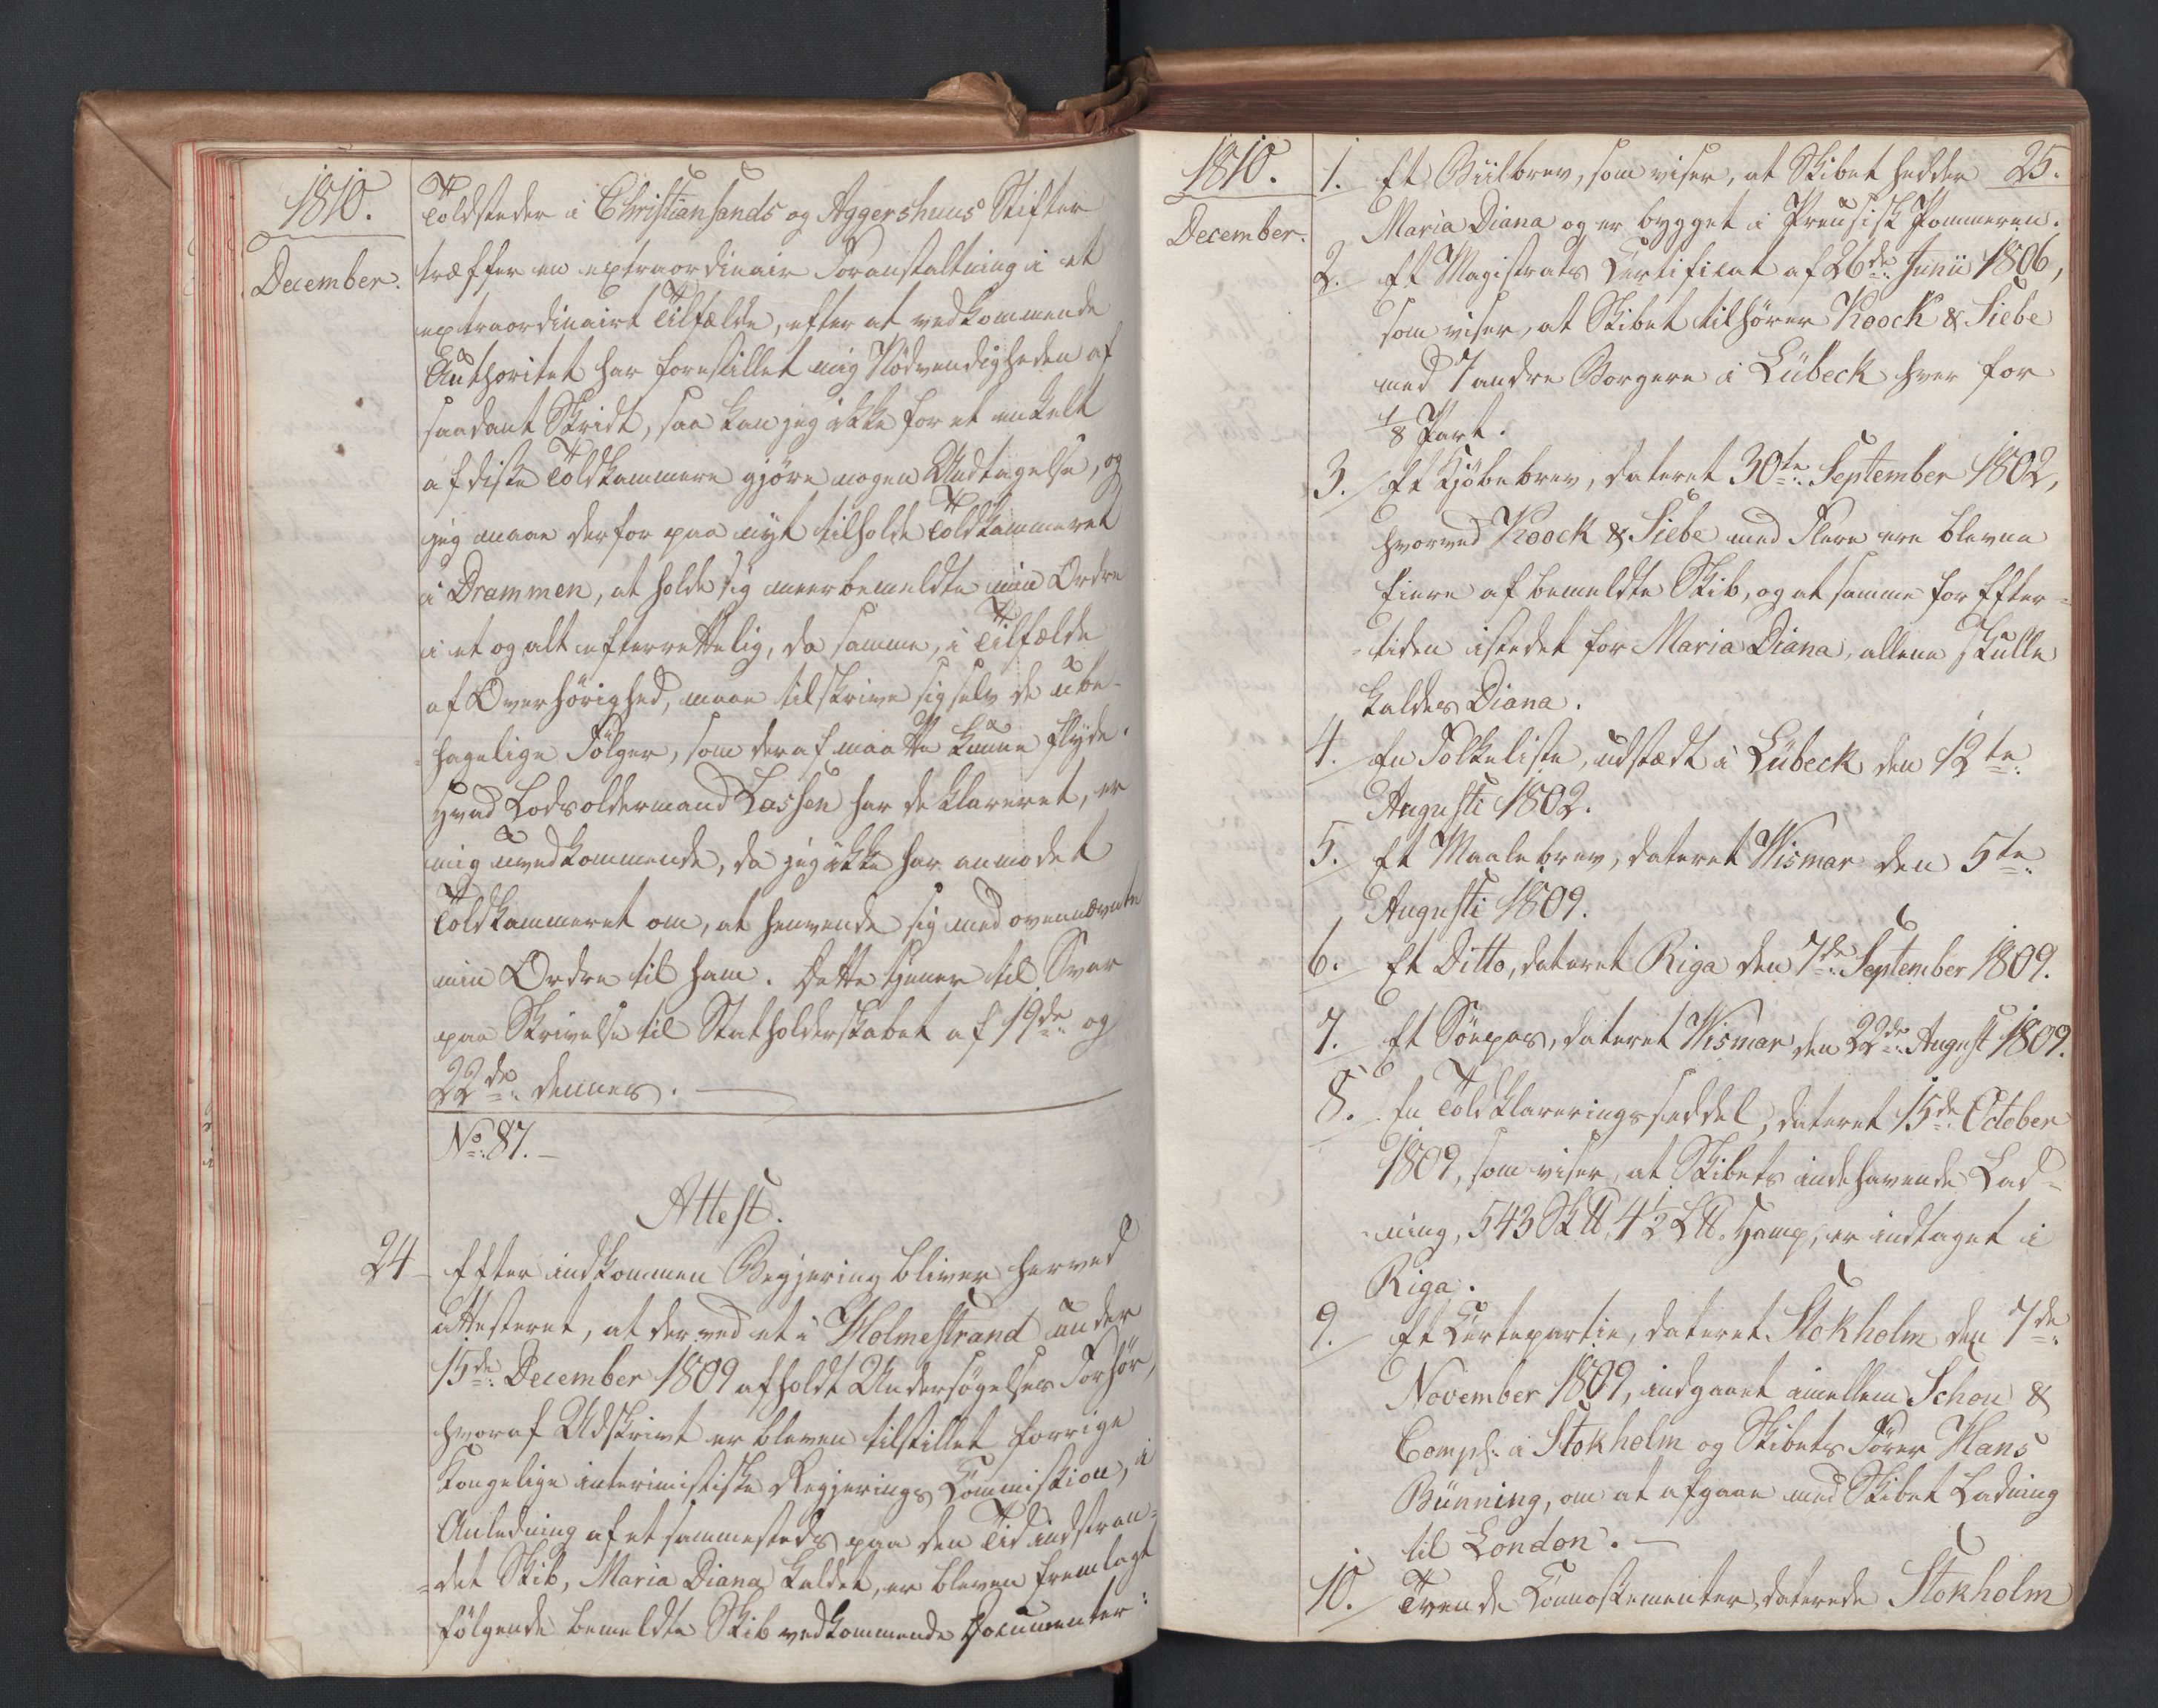 1810.
December.
Toldsteder i Christiansands og Aggershuus Stifter
træffer en extraordinair Foranstaltning i et
extraordinairt Tilfælde, efter at vedkommende
Authoritet har forestillet mig Nödvendigheden af
saadant Skridt, saa kan jeg ikke for et enkelt
af disse Toldkammere gjöre nogen Undtagelse, og
jeg maae derfor paa nyt tilholde Toldkammeret
i Drammen, at holde sig meerbemeldte min Ordre
i et og alt efterrettelig, da samme, i Tilfælde
af Overhörighed, maae tilskrive sig selv de ube-
hagelige Fölger, som deraf maatte kunne flyde.
Hvad Lodsoldermand Lassen har deklareret, er
mig uvedkommende, da jeg ikke har anmodet
Toldkammeret om, at henvende sig med ovennævnte
min Ordre til ham. Dette tjener til Svar
paa Skrivelse til Statholderskabet af 19de og
22de dennes. —
No 87. —
Attest.
24 Efter indkommen Begjering bliver herved
attesteret, at der ved et i Holmestrand under
15de December 1809 afholdt Undersögelses Forhör,
hvoraf Udskrivt er bleven tilstillet forrige
Kongelige interimistiske Regjerings Commission, i
Anledning af et sammesteds paa den Tid indstran=
=det Skib, Maria Diana kaldet, er bleven fremlagt
fölgende bemeldte Skib vedkommende Documenter:
1810.
25.
December.
1. Et Büilbrev, som viser, at Skibet hedder
Maria Diana og er bygget i Preusisk Pommeren.
2. Et Magistrats Certificat af 26de Junii 1806,
som viser, at Skibet tilhörer Koock & Siebe
med 7 andre Borgere i Lübeck hver for
1/8 Part.
3. Et Kjöbebrev, dateret 30te September 1802,
hvorved Koock & Siebe med Flere ere blevne
Eiere af bemeldte Skib, og at samme for Efter=
=tiden istedet for Maria Diana, allene skulle
kaldes Diana.
4. En Folkeliste, udstædt i Lübeck den 12te
Augusti 1802.
5. Et Maalebrev, dateret Wismar den 5te
Augusti 1809.
6. Et Ditto, dateret Riga den 7de September 1809.
7. Et Söepas, dateret Wismar den 22de August 1809.
8. En Toldklareringsseddel, dateret 15de October
1809, som viser, at Skibets indehavende Lad=
=ning, 543 Sk℔ 4½ L℔. Hamp, er indtaget i
Riga.
9. Et Certepartie, dateret Stokholm den 7de
November 1809, indgaaet imellem Schon &
Comp: i Stokholm og Skibets Förer Hans
Bünning, om at afgaae med Skibet Ladning
til London. —
10. Tvende Connoskementer, daterede Stokholm